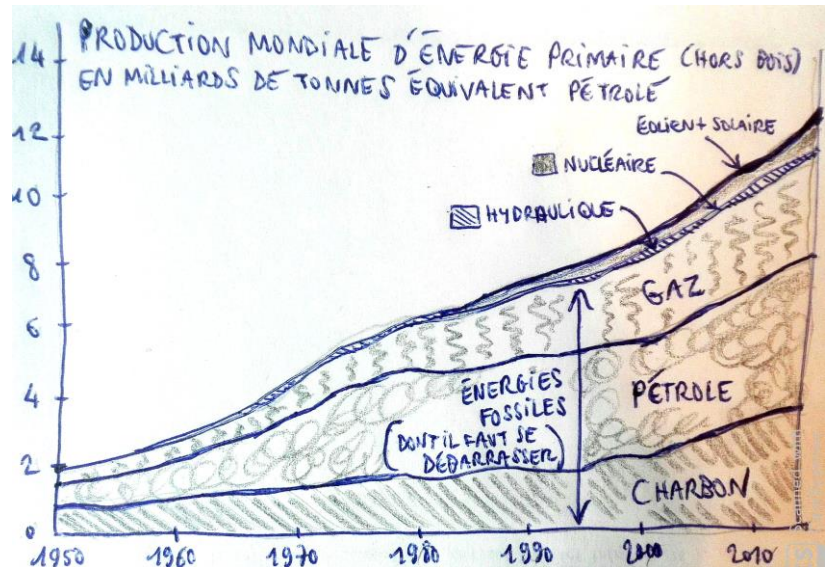 PRODUCTION MONDIALE D'ÉNERGIE PRIMAIRE (HORS BOIS)
EN MILLIARDS DE TONNES ÉQUIVALENT PÉTROLE
14
12
10
8
6
4
2
0
ÉOLIEN + SOLAIRE
NUCLÉAIRE
HYDRAULIQUE
GAZ
PÉTROLE
ÉNERGIES
FOSSILES
(DONT IL FAUT SE
DÉBARRASSER)
CHARBON
1950
1960
1970
1980
1990
2000
2010